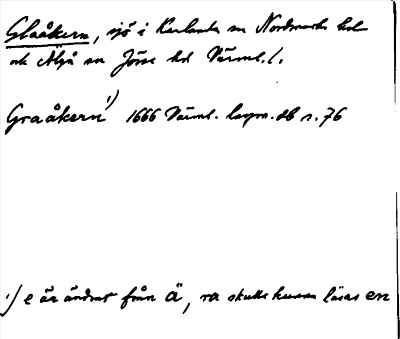 Glaåkern, sjö i Karlanda sn Nordmarks hd
och Älgå sn Jösse hd Värml. l.
Graåkern¹) 1666 Värml. lagm.db s. 76
¹) e är ändrat från ä, ra skulle kunna läsas en